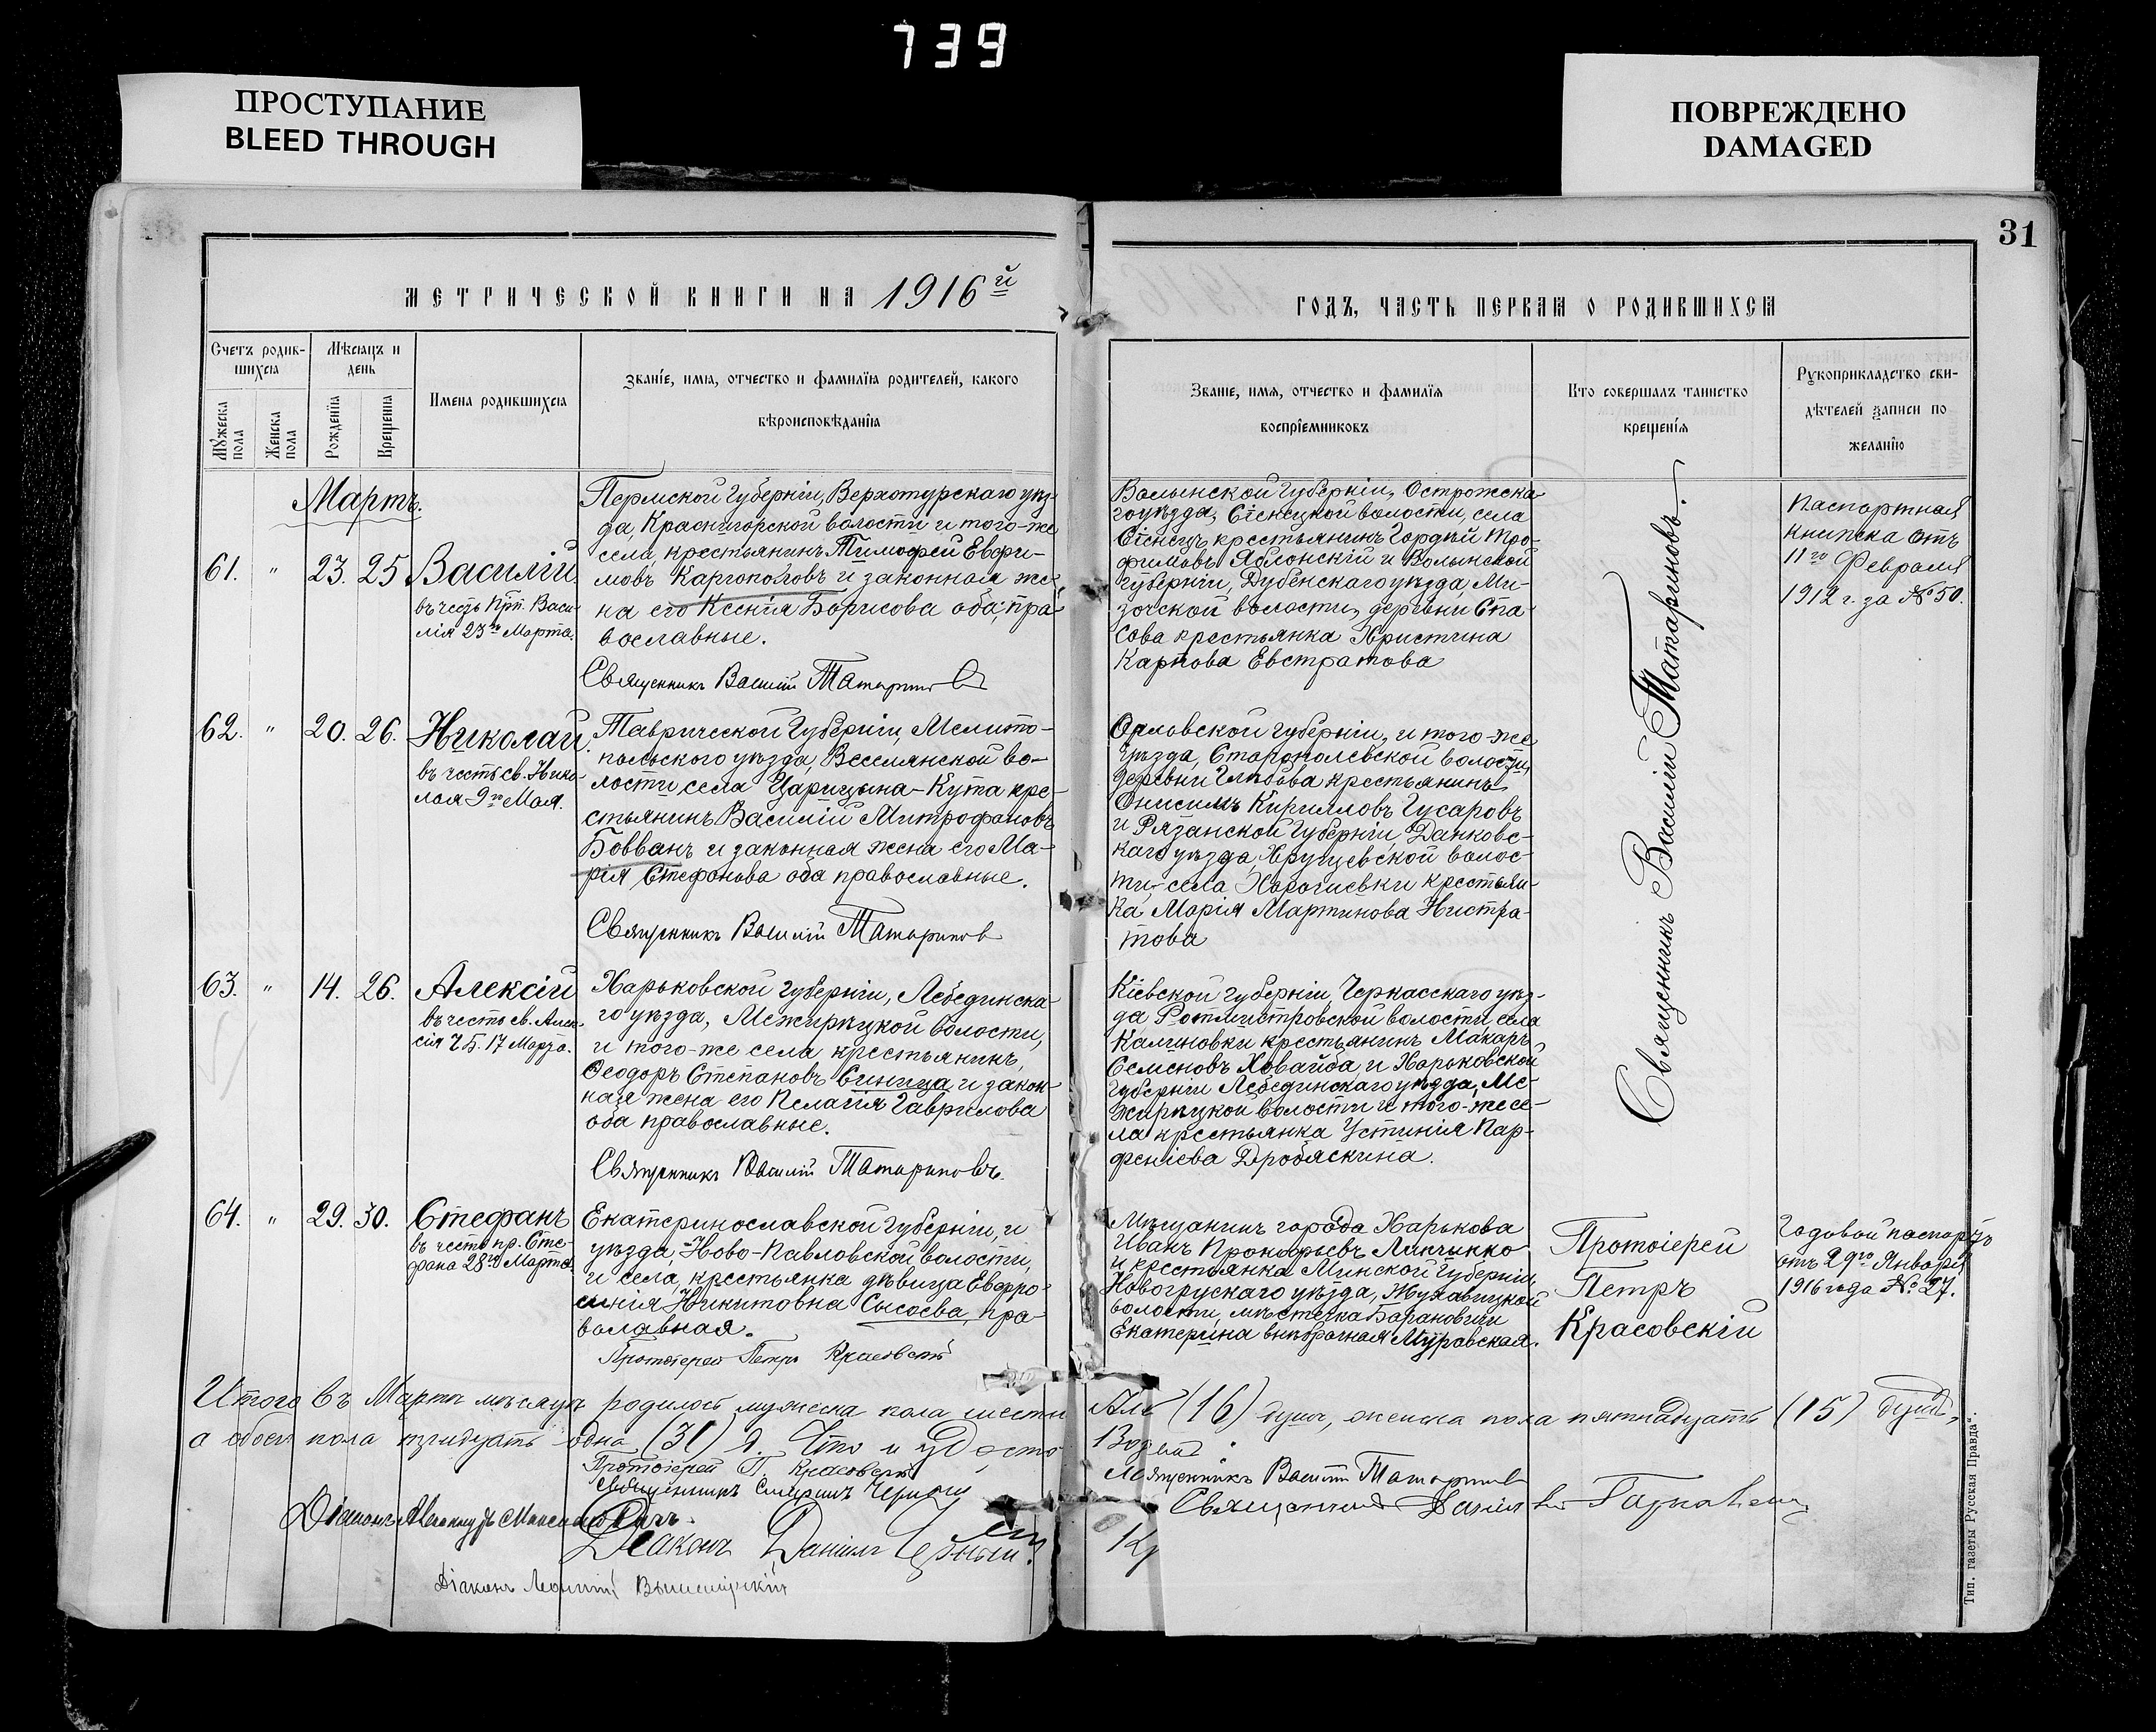 739
ПРОСТУПАНИЕ
BLEED THROUGH
ПОВРЕЖДЕНО
DAMAGED
31
МЕТРИЧЕСКОЙ КНИГИ НА 1916й
ГОДЪ, ЧАСТЬ ПЕРВАЯ О РОДИВШИХСЯ
Счетъ родив-
шихся
Мужеска пола
Женска пола
Мѣсяцъ и
день
Рожденїя
Крещенїя
Имена родившихся
Званїе, имя, отчество и фамилїя родителей, какого
вѣроисповѣданїя
Званїе, имя, отчество и фамилїя
воспрїемниковъ
Кто совершалъ таинство
крещенїя
Рукоприкладство сви-
дѣтелей записи по
желанїю
Мартъ.
61. " 23. 25 Василій
въ честь Прп. Васи-
лія 23го Марта.
Пермской губерніи, Верхотурскаго уѣз-
да, Красногорской волости и того-же
села, крестьянинъ Тимофей Евфи-
мовъ Каргополовъ и законная же-
на его Ксенія Борисова оба пра-
вославные.
Священникъ Василій Татаринов
Волынской губерніи, Острожска-
го уѣзда, Сіенецкой волости, села
Сіенецъ крестьянинъ Гордій Тро-
фимовъ Яблонскій и Волынской
губерніи, Дубенскаго уѣзда, Ми-
зочской волости, деревни Спа-
сова крестьянка Христина
Карпова Евстратова
Священникъ Василій Татариновъ.
Паспортная
книжка отъ
11го Февраля
1912 г. за № 50.
62. " 20. 26. Николай
въ честь св. Нико-
лая 9го Мая.
Таврической губерніи, Мелито-
польского уѣзда, Веселянской во-
лости села Царицына-Кута кре-
стьянинъ Василій Митрофановъ
Бовванъ и законная жена его Ма-
рія Стефанова оба православные.
Священникъ Василій Татаринов
Орловской губерніи, и того-же
уѣзда, Старополевской волости,
деревни Глѣбова крестьянинъ
Онисимъ Кирилловъ Гусаровъ
и Рязанской губерніи, Данковс-
каго уѣзда, Хрущевской волос-
ти, села крестьян-
ка Марія Мартинова Нистра-
това
63. " 14. 26. Алексій
въ честь св. Алек-
сія Ч.Б. 17 Марта.
Харьковской губерніи, Лебединска-
го уѣзда, Межирѣцкой волости,
и того-же села крестьянинъ,
Ѳеодоръ Степановъ Синица и закон-
ная жена его Пелагія Гаврилова
оба православные.
Священникъ Василій Татариновъ.
Кіевской губерніи, Черкасскаго уѣз-
да Ротмистровской волости села
Калиновки крестьянинъ Макаръ
Семеновъ Ховайба, и Харьковской
губерніи Лебединскаго уѣзда, Ме-
жирѣцкой волости и того-же се-
ла крестьянка Устинія Пар-
феніева Дробяскина.
64. " 29. 30. Стефанъ
въ честь пр. Сте-
фана 28го Марта.
Екатеринославской губерніи, и
уѣзда, Ново-Павловской волости,
и села, крестьянка дѣвица Евфро-
синія Никитовна Сысоева, пра-
вславная.
Протоіерей Петръ Красовскій
Мѣщанинъ города Харькова
Иванъ Прокофьевъ
и крестьянка Минской губерніи,
Новогрускаго уѣзда,
волости, мѣстечка Барановичи
Екатерина внѣбрачная Муравская.
Протоіерей
Петръ
Красовскій
Годовой паспортъ
отъ 29го Января
1916 года № 27.
Итого въ Мартѣ мѣсяцѣ родилось мужеска пола шестн адц (16) душъ, женска пола пятнадцать (15) душъ,
а обоего пола тридцать одна (31) д. Что и удосто
Протоіерей П. Красовскій
Священникъ Черной
Діаконъ Александръ
Діаконъ Даніилъ
Діаконъ
Священникъ Василій Татаринов
Священникъ
Тип. газеты „Русская Правда“.